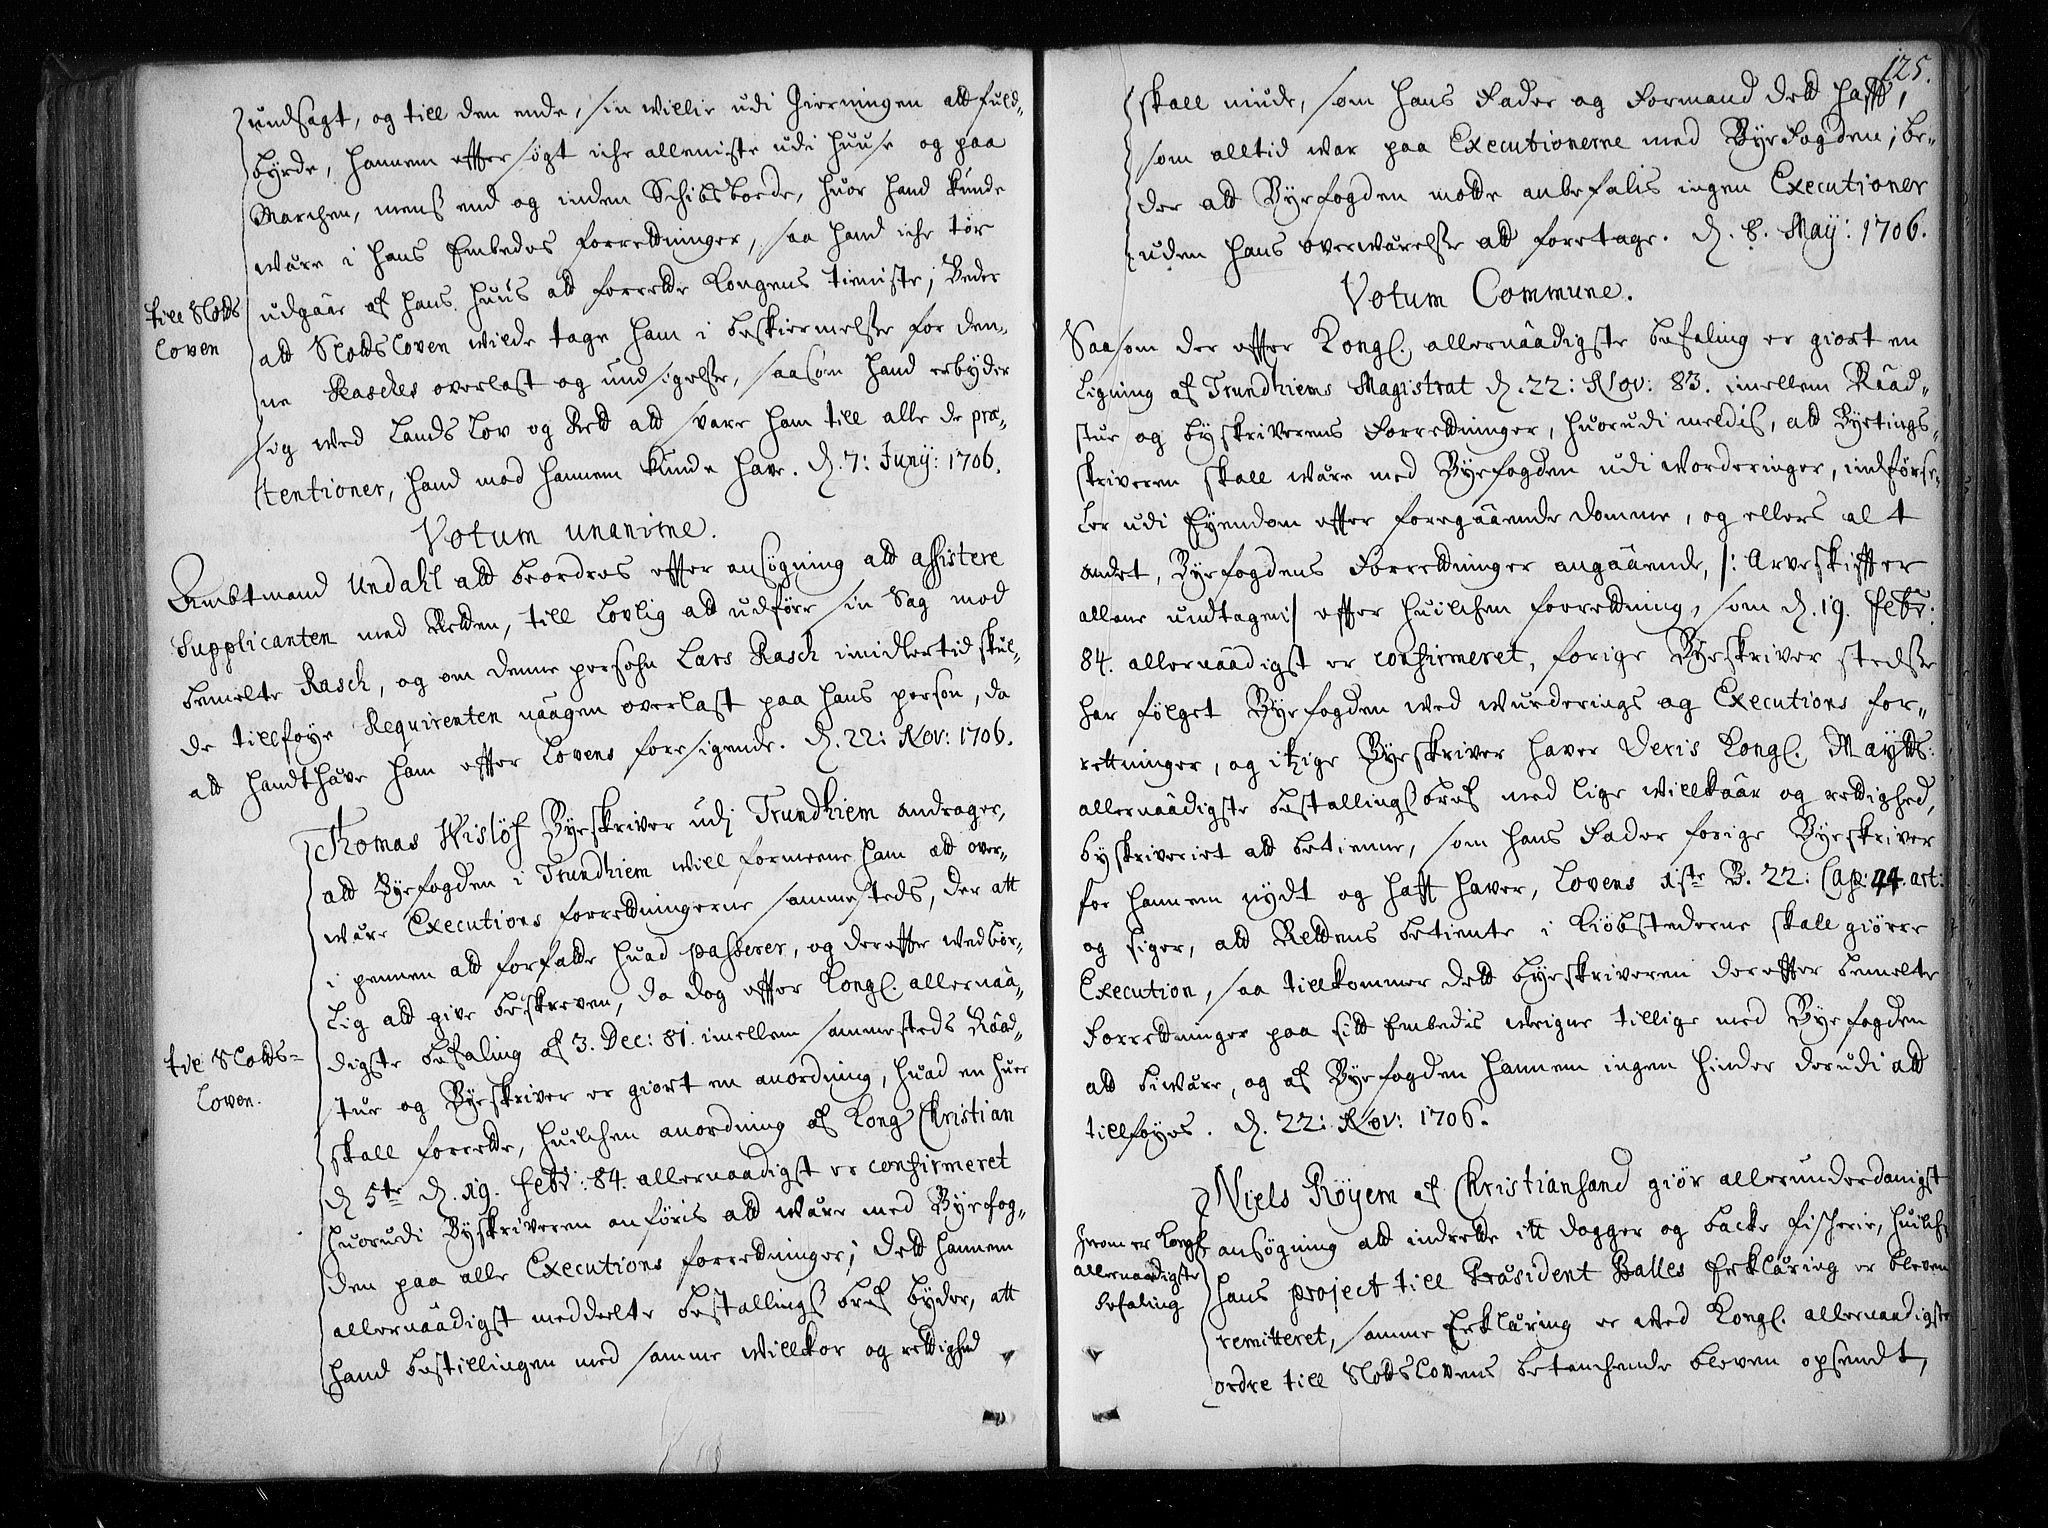 undsagt, og till den ende, sin willie udi Gierningen att fuld-
byrde, hannem effter søgt iche alleniste udi huuse og paa
Marchen, mens end og inden Schibsborde, huor hand kunde
wære i hans Embedes forrettninger, saa hand iche tør
udgaar af hans huus att forrette Kongens tieniste; Beder
till Slotts
loven
att Slottsloven wilde tage ham i beskiermelse for den-
ne Rasches overlast og undsigelse, saasom hand erbyder
sig wed Lands Lov og Rett att svare ham till alle de præ-
tentioner, hand mod hannem kunde have. D. 7: Junij: 1706.
Votum unanime.
Ambtmand Undahl att beordres effter ansøgning att assistere
Supplicanten med Retten, till lovlig att udføre sin Sag mod
bemelte Rasch, og om denne persohn Lars Rasch imidlertid skul-
de tillføye Requirenten naagen overlast paa hans person, da
att handthæve ham effter Lovens foresigende. D. 22: Nov: 1706.
Thomas Wisløf Byeskriver udj Trundhiem andrager,
att Byefogden i Trundhiem will formeene ham att over-
wære Executions forrettningerne sammesteds, der att
i pennen att forfatte huad passerer, og dereffter wedbør-
lig att give beskreven, da dog effter Kongl. allernaa-
digste befaling af 3. Dec: 81. imellem sammesteds Raad-
till Slotts=
loven.
stue og Byeskriver er giort en anordning, huad en huer
skall forrette, huilchen anordning af Kong Christian
D 5te D. 19. Febr: 84. allernaadigst er confirmeret
huorudi Byskriveren anføris att wære med Byefog-
den paa alle Executions forrettninger; Dett hannem
allernaadigst meddeelte bestallings bref byder, att
hand bestillingen med samme willkor og rettighed
125.
skall niude, som hans Fader og Formand dett hafft,
som alltid war paa Executionerne med Byefogden; be-
der att Byefogden motte anbefalis ingen Executioner
uden hans overwærelse att foretage. D. 8. Maij: 1706.
Votum Commune.
Saasom der effter Kongl. allernaadigste befaling er giort en
ligning af Trundhiems Magistrat D. 22: Nov: 83. imellem Raad-
stue og byskriverens Forrettninger, huorudi meldis, att Byetings-
skriveren skall wære med Byefogden udi worderinger, indførse-
ler udi Eyendom effter foregaaende domme, og ellers alt
andet, Byefogdens Forrettninger angaaende, /: Arveskiffter
allene undtagen :/ effter huilchen forrettning, som D. 19. Febr:
84. allernaadigst er confirmeret, forige Byeskriver stedse
har fölget Byefogden wed wurderings og Executions for-
rettninger, og itzige Byeskriver haver Deris Kongl. Maytts:
allernaadigste bestallings bref med lige willkaar og rettighed,
byskriveriet att betienne, som hans Fader forige Byeskriver
for hannem nydt og hafft haver, Lovens 1ste B. 22: Cap: 44. art:
og siger, att Rettens betiente i Kiöbstederne skall giørre
Execution, saa tillkommer dett byeskriveren dereffter bemelte
Forrettninger paa sitt Embedis weigne tillige med Byefogden
att biwære, og af Byefogden hannem ingen hinder derudi att
tillføyes. D. 22: Nov: 1706.
Niels Röyem af Christiansand giør allerunderdanigst
ansøgning att indrette itt dogger og backe fischerie, huilch
hvorom er Kongl
allernaadigste
befaling
hans project till Præsident Balles Erklæring er bleven
remitteret, samme Erklæring er wed Kongl. allernaadigste
ordre till Slottslovens betenchende bleven opsendt,